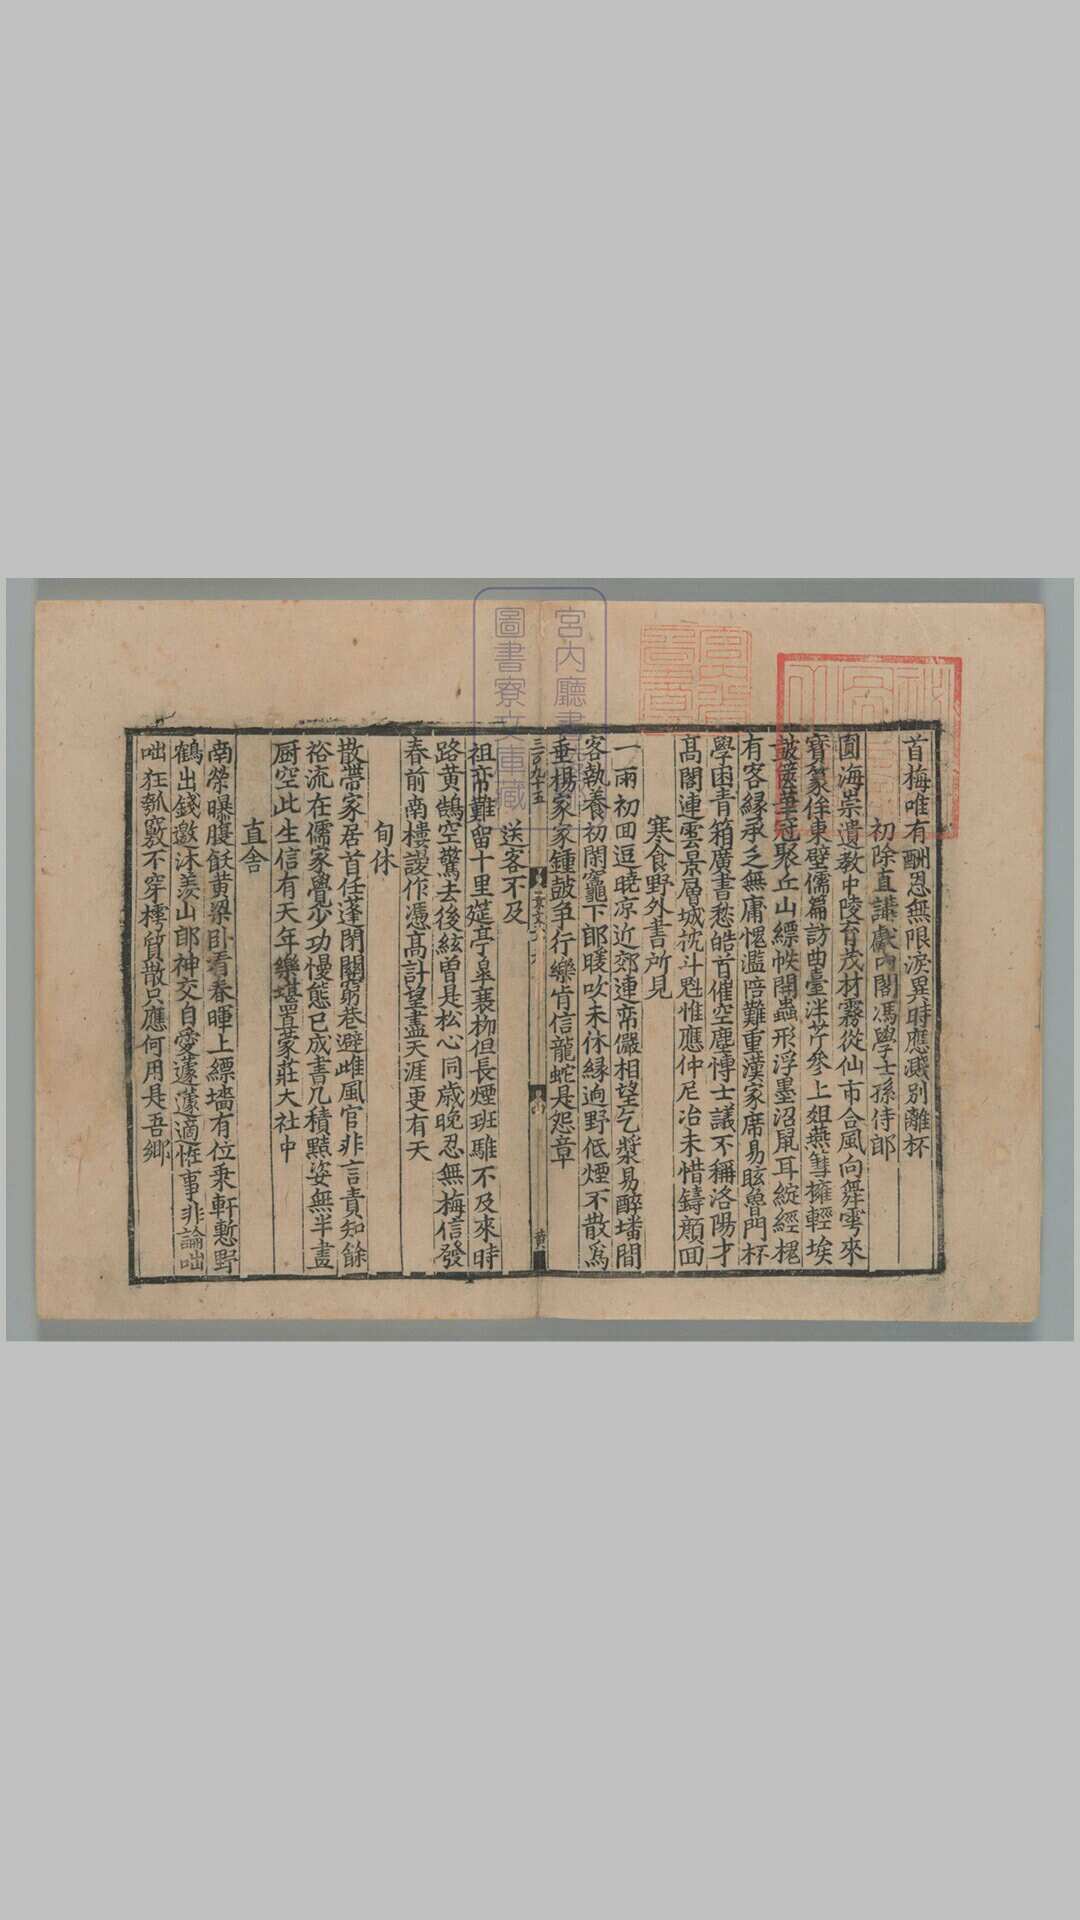 首梅唯有酬恩無限淚異時應濺別離杯
初除直講獻內閣馮學士孫侍郎
圓海崇遺敎中陵育茂材霧從仙市合風向舞雩來
寶篆侔東壁儒篇訪曲臺泮芹參上俎燕彗擁輕埃
皷篋華冠聚丘山縹帙開蟲形浮墨沼鼠耳綻經槐
有客緣承乏無庸愧濫陪難重漢家席易眩魯門杯
學困青箱廣書愁皓首催空塵博士議不稱洛陽才
髙閣連雲景層城抌斗魁惟應仲尼冶未惜鑄顏回
寒食野外書所見
一雨初回逗曉凉近郊連帟儼相望乞漿易醉墦間
客執養初閑竈下郎暖吹未休緣逈野低煙不散爲
垂楊家家鍾鼓爭行樂肯信龍蛇是怨章
三百九十五
送客不及
祖帟難留十里筵亭皋衰栁但長煙班騅不及來時
路黃鵠空驚去後絃曽是松心同歲晚忍無梅信發
春前南樓謾作憑髙計望盡天涯更有天
旬休
散帶家居首任蓬閉關窮巷避雌風官非言責知餘
裕流在儒家覺少功慢態已成書几積黠姿無半畫
厨空此生信有天年樂堪置蒙莊大社中
直舍
南榮曝腹飫黃粱卧看春暉上縹墻有位乘軒慙野
鶴出錢邀沐羨山郎神交自愛蘧蘧適恠事非論咄
咄狂瓠竅不穿樗質散只應何用是吾鄉
宮內廳書
圖書寮文庫藏